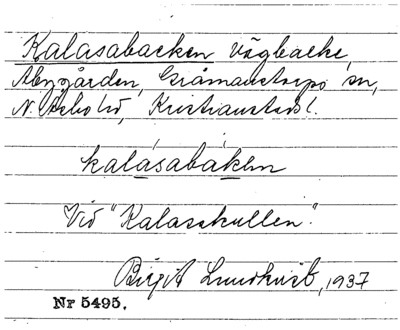 Kalasabacken vägbacke,
Åbygården, Gråmanstorps sn,
N. Åsbo hd, Kristianstads l.
kalásabákkn
Vid "Kalasskullen".
Birgit Lundkvist, 1937
Nr 5495.